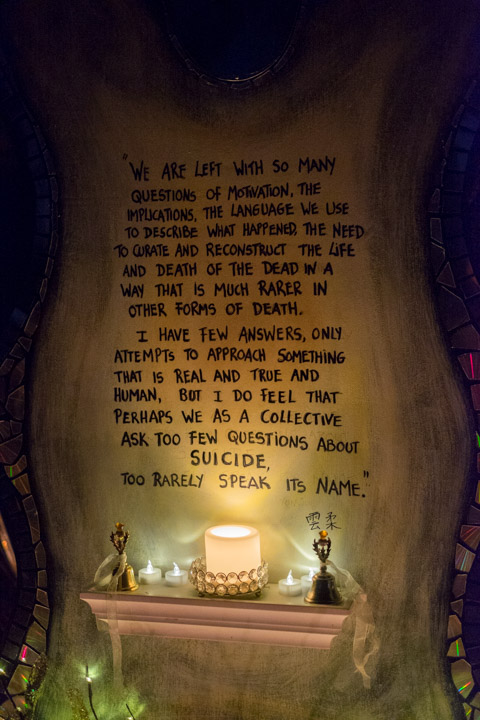 "WE ARE LEFT WITH SO MANY
QUESTIONS OF MOTIVATION, THE
IMPLICATIONS, THE LANGUAGE WE USE
TO DESCRIBE WHAT HAPPENED, THE NEED
TO CURATE AND RECONSTRUCT THE LIFE
AND DEATH OF THE DEAD IN A
WAY THAT IS MUCH RARER IN
OTHER FORMS OF DEATH.
I HAVE FEW ANSWERS, ONLY
ATTEMPTS TO APPROACH SOMETHING
THAT IS REAL AND TRUE AND
HUMAN, BUT I DO FEEL THAT
PERHAPS WE AS A COLLECTIVE
ASK TOO FEW QUESTIONS ABOUT
SUICIDE,
TOO RARELY SPEAK ITS NAME."
雲柔